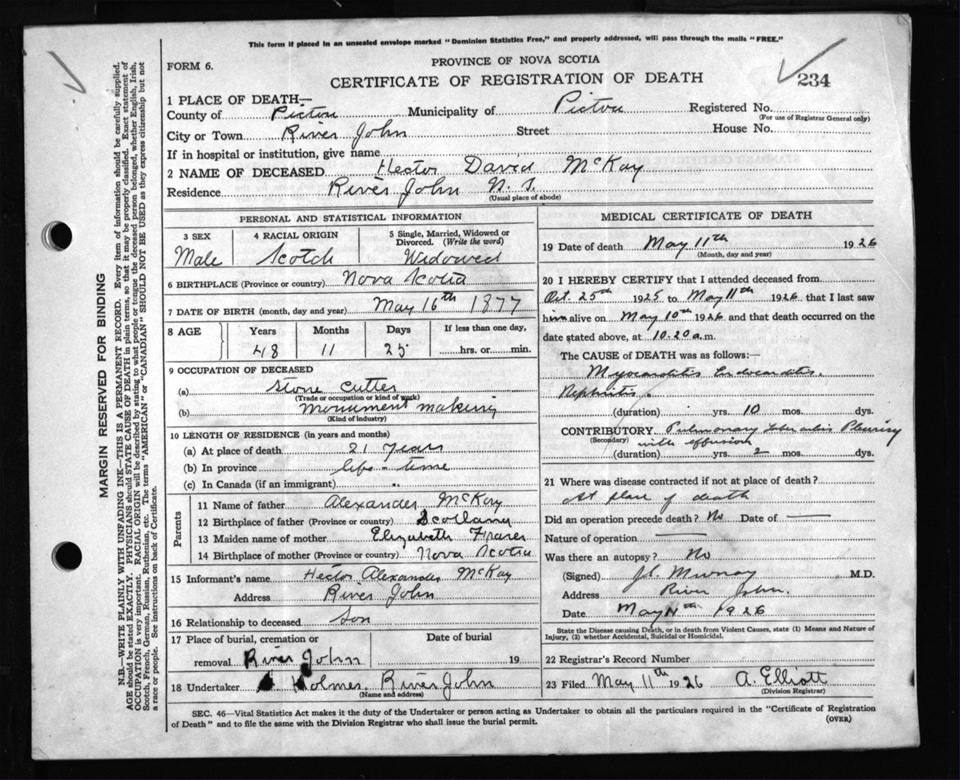 This form if placed in an unsealed envelope marked "Dominion Statistics Free," and properly addressed, will pass through the mails "FREE."
FORM 6.
PROVINCE OF NOVA SCOTIA
CERTIFICATE OF REGISTRATION OF DEATH
234
1 PLACE OF DEATH—
County of Pictou Municipality of Pictou Registered No.
(For use of Registrar General only)
City or Town River John Street House No.
If in hospital or institution, give name
2 NAME OF DECEASED Hector David McKay
Residence River John N. S.
(Usual place of abode)
PERSONAL AND STATISTICAL INFORMATION
3 SEX 4 RACIAL ORIGIN 5 Single, Married, Widowed or Divorced. (Write the word)
Male Scotch Widowed
6 BIRTHPLACE (Province or country) Nova Scotia
7 DATE OF BIRTH (month, day and year) May 16th 1877
8 AGE Years Months Days If less than one day,
48 11 25 hrs. or min.
9 OCCUPATION OF DECEASED
(a) Stone Cutter
(Trade or occupation or kind of work)
(b) Monument making
(Kind of industry)
10 LENGTH OF RESIDENCE (in years and months)
(a) At place of death 21 years
(b) In province life-time
(c) In Canada (if an immigrant)
Parents
11 Name of father Alexander McKay
12 Birthplace of father (Province or country) Scotland
13 Maiden name of mother Elizabeth Fraser
14 Birthplace of mother (Province or country) Nova Scotia
15 Informant's name Hector Alexander McKay
Address River John
16 Relationship to deceased Son
17 Place of burial, cremation or removal River John
Date of burial 19
18 Undertaker Holmes, River John
(Name and address)
MEDICAL CERTIFICATE OF DEATH
19 Date of death May 11th 1926
(Month, day and year)
20 I HEREBY CERTIFY that I attended deceased from
Oct. 25th 1925 to May 11th 1926, that I last saw
him alive on May 10th 1926 and that death occurred on the
date stated above, at 10.20 a.m.
The CAUSE OF DEATH was as follows:—
Myocarditis Endocarditis
Nephritis.
(duration) yrs. 10 mos. dys.
CONTRIBUTORY Pulmonary Pleurisy
(Secondary) with effusion
(duration) yrs. 2 mos. dys.
21 Where was disease contracted if not at place of death?
At place of death
Did an operation precede death? No Date of —
Nature of operation —
Was there an autopsy? No
(Signed) Murray M.D.
Address River John.
Date May 11th 1926
State the Disease causing Death, or in death from Violent Causes, state (1) Means and Nature of
Injury, (2) whether Accidental, Suicidal or Homicidal.
22 Registrar's Record Number
23 Filed May 11th 1926 A. Elliott
(Division Registrar)
SEC. 46—Vital Statistics Act makes it the duty of the Undertaker or person acting as Undertaker to obtain all the particulars required in the "Certificate of Registration
of Death" and to file the same with the Division Registrar who shall issue the burial permit.
(OVER)
MARGIN RESERVED FOR BINDING
N.B.—WRITE PLAINLY WITH UNFADING INK—THIS IS A PERMANENT RECORD. Every item of information should be carefully supplied.
AGE should be stated EXACTLY. PHYSICIANS should STATE CAUSE OF DEATH in plain terms, so that it may be properly classified. Exact statement of
OCCUPATION is very important. RACIAL ORIGIN will be described by stating to what people or tongue the deceased person belonged, whether English, Irish,
Scotch, French, German, Russian, Ruthenian, etc. The terms "AMERICAN" or "CANADIAN" SHOULD NOT BE USED as they express citizenship but not
a race or people. See instructions on back of Certificate.